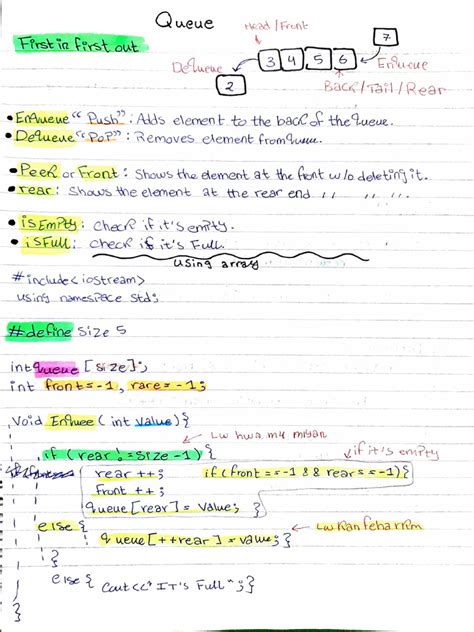 Queue
Head / Front
First in first out
7
3 4 5 6
DeQueue
Enqueue
2
Back / Tail / Rear
• EnQueue "Push": Adds element to the back of the Queue.
• DeQueue "PoP": Removes element from queue.
• Peek or Front: Shows the element at the front w/o deleting it.
• rear: Shows the element at the rear end " " " "
• isEmpty: check if it's empty.
• isFull: check if it's Full.
using array
#include<iostream>
using namespace std;
#define size 5
int queue [size];
int front=-1, rare=-1;
Void Enquee (int value){
Lw hwa m4 mlyan
if (rear != size -1){
if it's empty
rear ++; if(front==-1 && rear==-1){
Front ++;
queue[rear] = value; }
else {
Lw kan feh arkm
queue[++rear] = value; }
}
else { cout<<"IT's Full"; }
}